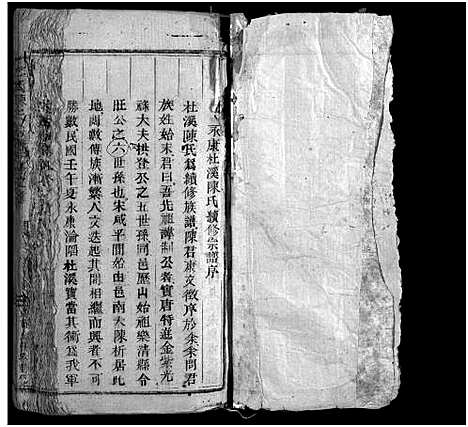 永康杜溪陳氏續修宗譜序
杜溪陳氏爲續修族譜陳君康文徵序於余余問君
族姓始末君曰吾先祖諱制公者實唐特進金紫光
祿大夫拱登公之五世孫同邑歷山始祖樂清縣令
莊公之六世孫也宋咸平間始由邑南大陳析居此
地兩數傳族漸繁人文迭起其間相繼而興者不可
勝數民國壬午夏永康淪陷杜溪實當其衝爲我軍